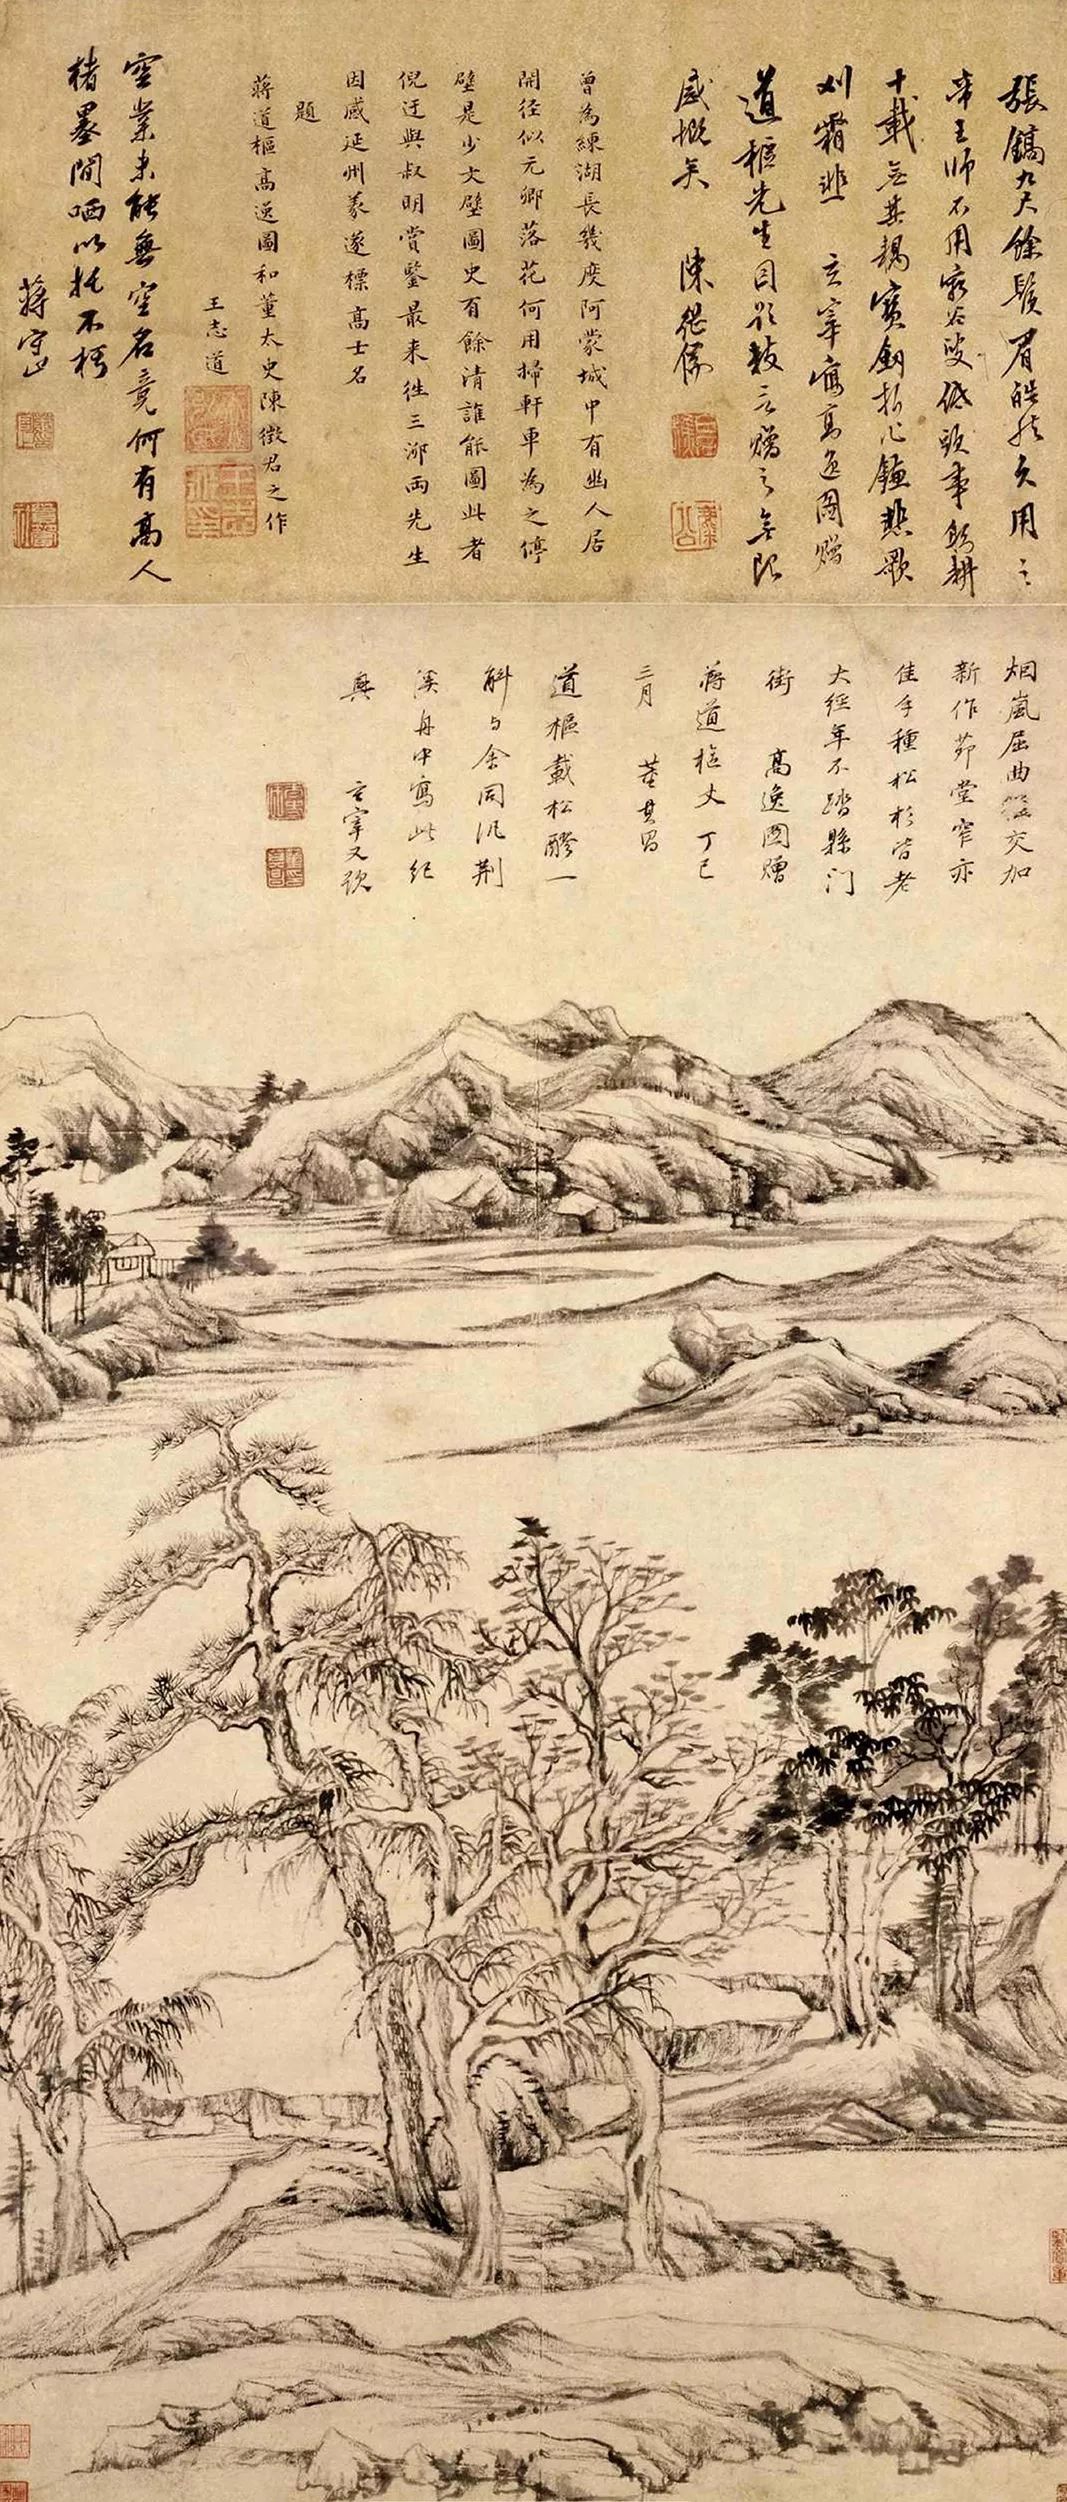 張鎬九尺餘鬚眉皓然久用之
帝王師不用窮谷叟低頭事躬耕
十載無其耦寶劍折作鐮悲歌
刈霜韭　玄宰寫高逸圖贈
道樞先生因題數言贈之無限
感慨矣　陳繼儒
曾為練湖長幾度阿蒙城中有幽人居
開徑似元卿落花何用掃軒車為之停
壁是少文壁圖史有餘清誰能圖此者
倪迂與叔明賞鑒最來往三泖兩先生
因感延州義遂標高士名
題
蔣道樞高逸圖和董太史陳徵君之作
王志道
空業未能無空名竟何有高人
楮墨間哂以托不朽
蔣守止
烟嵐屈曲徑交加
新作茆堂窄亦
佳手種松杉皆老
大經年不踏縣門
街　高逸圖贈
蔣道樞丈　丁巳
三月　董其昌
道樞載松醪一
斛與余同汎荆
溪舟中寫此紀
興　玄宰又識